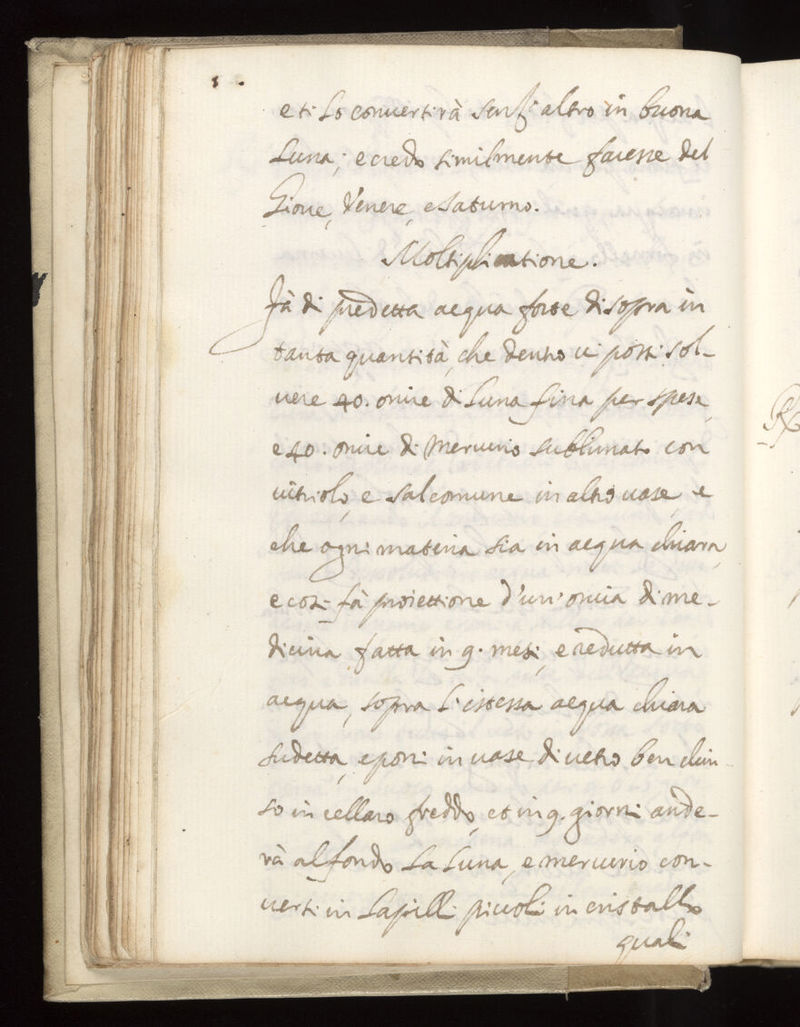 e ti lo convertirà senz'altro in buona
Luna; e credo similmente facesse del
Giove, Venere, e Saturno.
Moltiplicatione.
Fà di predetta acqua forte di sopra in
tanta quantità, che dentro vi possi sol-
vere 40. oncie di Luna fina per spese,
e 40. oncie di Mercurio sublimato con
vitriolo, e sal comune in altro vase, e
che ogni materia sia in acqua chiara,
e così fà proiettione d'un'oncia di me-
dicina fatta in 9. mesi, e redutta in
acqua, sopra l'istessa acqua chiara
sudetta, e poni in vase di vetro ben chiu-
so in cellaro freddo, et in 9. giorni ande-
rà al fondo la Luna, e mercurio con-
verti in Lapilli piccoli in cristallo
quali